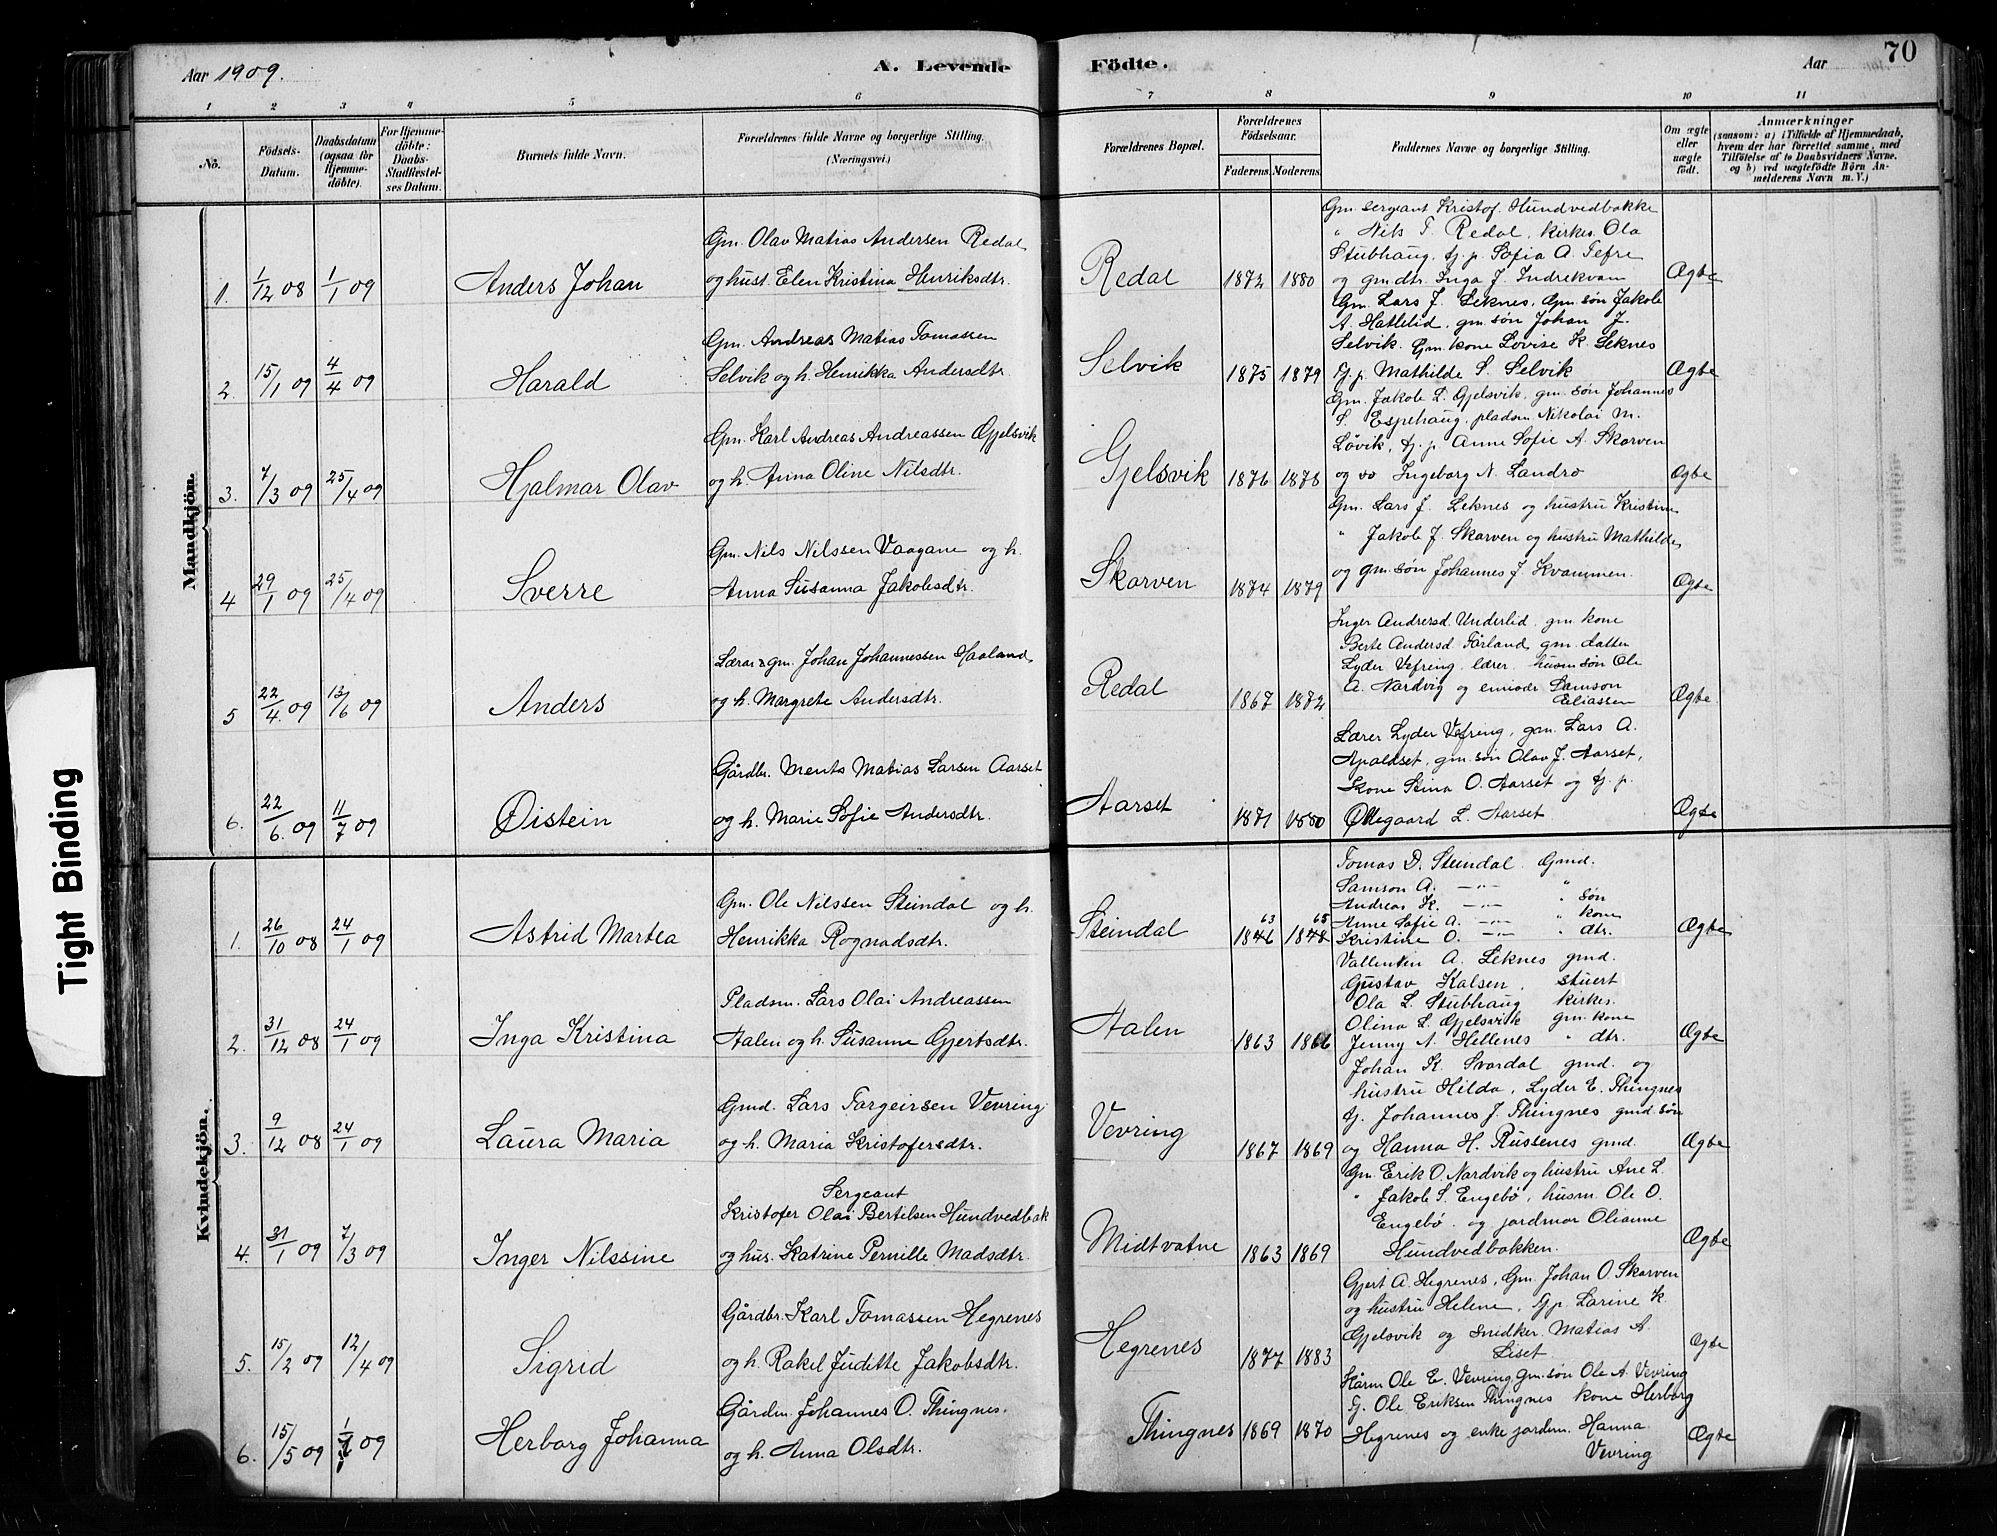 Aar 1909.
A. Levende Födte.
Aar
70
1 2 3 4 5 6 7 8 9 10 11
No.
Födsels-Datum.
Daabsdatum (ogsaa for Hjemmedöbte).
For Hjemmedöbte: Daabs-Stadfæstelses Datum.
Barnets fulde Navn.
Forældrenes fulde Navne og borgerlige Stilling. (Næringsvei.)
Forældrenes Bopæl.
Forældrenes Födselsaar.
Faderens. Moderens.
Faddernes Navne og borgerlige Stilling.
Om ægte eller uægte født.
Anmærkninger
(saasom: a) i Tilfælde af Hjemmedaab,
hvem der har forrettet samme, med
Tilföielse af to Daabsvidners Navne.
og b) ved uægtefödte Börn An-
melderens Navn m. V.)
Mandkjön.
1. 1/12 08 1/1 09 Anders Johan
Gm. Olav Matias Andersen Redal
og hust. Elen Kristina Henriksdtr.
Redal 1872 1880
Gm. sergeant Kristof. Hundvedbakke
" Nils T. Redal, kirkes. Ola
Stubhaug, tj. p. Sofia A. Tefre
og gm.dtr. Inga J. Indrekvam
Ægte
2. 15/1 09 4/4 09 Harald
Gm. Andreas Matias Tomassen
Selvik og h. Henrikka Andersdtr.
Selvik 1875 1879
Gm. Lars J. Leknes, Gm. søn Jakob
A. Hatlelid, gm. søn Johan J.
Selvik. Gm. kone Lovise K. Leknes
tj. p. Mathilde S. Selvik
Ægte
3. 7/3 09 25/4 09 Hjalmar Olav
Gm. Karl Andreas Andreassen Gjelsvik
og h. Anna Oline Nilsdtr.
Gjelsvik 1876 1878
Gm. Jakob L. Gjelsvik, gm. søn Johannes
S. Espehaug, pladsm. Nikolai M.
Løvik, tj. p. Anne Sofie A. Skorven
og Ingeborg N. Landro
Ægte
4 29/1 09 25/4 09 Sverre
Gm. Nils Nilssen Vaagane og h.
Anna Susanna Jakobsdtr.
Skorven 1874 1879
Gm. Lars J. Leknes og hustru Kristine
" Jakob J. Skorven og hustru Mathilde
og gm. søn Johannes J. Kvammen.
Ægte
5 22/4. 09 13/6 09 Anders
Lærer gm. Johan Johannessen Haaland
og h. Margrete Andersdtr.
Redal 1867 1872
Inger Andersd. Underlid. gm. kone
Berte Andersd. Førland, gm. datter
Lyder Vefring, lærer, husm. søn Ole
A. Nardvig og Samson
Eliassen
Ægte
6. 22/6. 09 11/7 09 Øistein
Gårdbr. Ments Matias Larsen Aarset
og h. Marie Sofie Andersdtr.
Aarset 1871 1880
Lærer Lyder Vefring, gm. Lars A.
Apaldset, gm. søn Olav J. Aarset,
kone Stina O. Aarset og tj. p.
Ollegaard L. Aarset
Ægte
Kvindekjön.
1. 26/10 08 24/1 09 Astrid Martea
Gm. Ole Nilssen Steindal og h.
Henrikka Rognaldsdtr.
Steindal 63 1846 65 1848
Tomas D. Steindal. Gmd.
Samson A. —"— "
Andreas K. —"— " søn
Anne Sofie A. —"— " kone
Kristine O. —"— " dtr.
Ægte
2. 31/12 08 24/1 09 Inga Kristina
Pladsm. Lars Olai Andreassen
Aalen og h. Susanne Gjertsdtr.
Aalen 1863 1866
Vallentin A. Leknes gmd.
Gustav Kalsen. stuert
Ola L. Stubhaug kirkes.
Olina L. Gjelsvik gm. kone
Jenny A. Hellenes " dtr.
Ægte
3. 9/12 08 24/1 09 Laura Maria
Gmd. Lars Torgeirsen Vevring
og h. Maria Kristofersdtr.
Vevring 1867 1869
Johan K. Svardal gmd. og
hustru Hilda, Lyder E. Thingnes
tj. Johannes J. Thingnes gmd. søn
og Hanna H. Russenes gmd.
Ægte
4. 31/1 09 7/3 09 Inger Nilssine
Sergeant
Kristofer Olai Bertelsen Hundvedbak
og hus. Katrine Pernille Madsdtr.
Midtvatne 1863 1869
Gm. Erik O. Nardvik og hustru Ane L.
" Jakob S. Engebø, husm. Ole O.
Engebø og jordmor Olianne
Hundvedbakken.
Ægte
5. 15/2 09 12/4 09 Sigrid
Gårdbr. Karl Tomassen Hegrenes
og h. Rakel Juditte Jakobsdtr.
Hegrenes 1877 1883
Gjert A. Hegrenes, Gm. Johan O. Skorven
og hustru Helene, Gp. Larine K.
Gjelsvik og snidker. Matias A.
Liset.
Ægte
6. 15/5 09 09 Herborg Johanna
Gårdm. Johannes O. Thingnes.
og h. Anna Olsdtr.
Thingnes 1869 1870
Kårm. Ole E. Vevring, Gm. søn Ole A. Vevring
G. Ole Eriksen Thingnes kone Herborg
Hegrenes og enke jordem. Hanna
Vevring
Ægte
Tight Binding